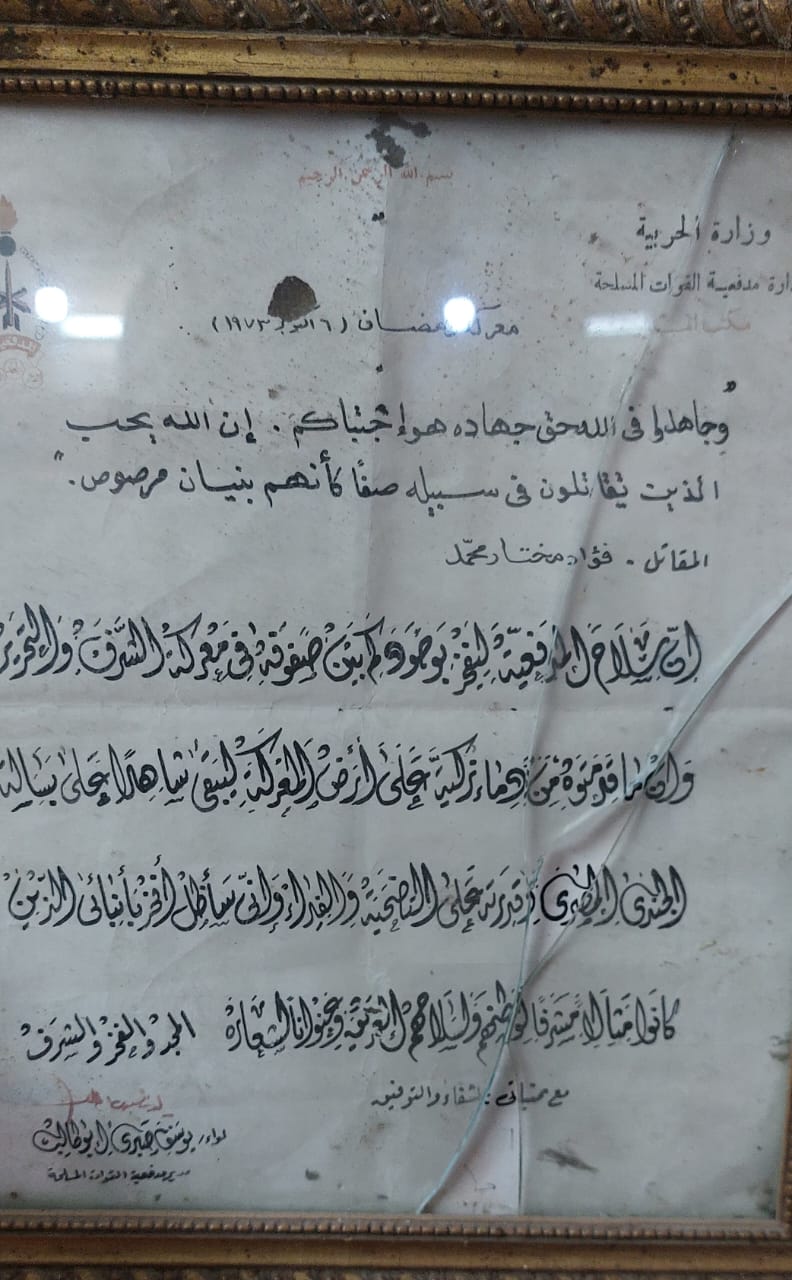 بسم الله الرحمن الرحيم
وزارة الحربية
دارة مدفعية القوات المسلحة
مكتب
معركة رمضان (٦ أكتوبر ١٩٧٣)
"وجاهدوا في الله حق جهاده هو اجتباكم . إن الله يحب
الذين يقاتلون في سبيله صفًا كأنهم بنيان مرصوص . "
المقاتل . فؤاد مختار محمّد
إنّ سلاح المدفعيّة ليفخر بوجودكم بين صفوفه في معركة الشّرف والتحرير
وإن ما قدمتوه من دماء زكيّة على أرض المعركة ليبقى شاهدًا على بسالة
الجندى المصرى وقدرته على التضحية والفداء وإنّى سأظل أفخر بأبنائى الذين
كانوا مثالاً مشرفًا لوطنهم ولسلاحهم العريق وعنوانًا لشعاره المجد والفخر والشرف
مع تمنياتى بالشفاء والتوفيق
لواء / يوسف صبرى أبو طالب
مدير مدفعية القوات المسلحة